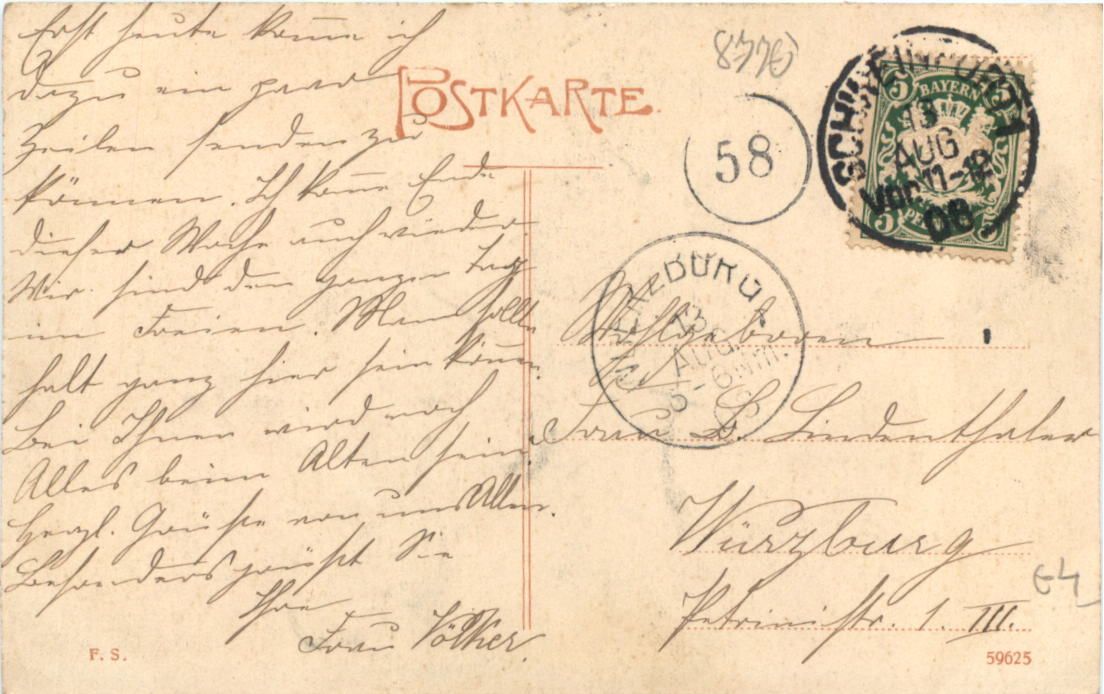 Erst heute komme ich
dazu ein paar
Zeilen senden zu
können. Ich komme Ende
dieser Woche auch wieder
Wir sind den ganzen Tag
im Freien. Man sollte
halt ganz hier sein können.
Bei Ihnen wird noch
Alles beim Alten sein.
Herzl. Grüße von uns Allen.
Besonders grüßt Sie
Ihre
Frau Völker.
F. S.
POSTKARTE.
8770
58
SCHWEINFURT
13
AUG
Vor. 11-12
08
BAYERN
5 5
5 5
WUERZBURG
13
AUG
5-6 Nm.
08
Wohlgeboren
Frau B. Lindenthaler
Würzburg
Petrinistr. 1. III.
64
59625